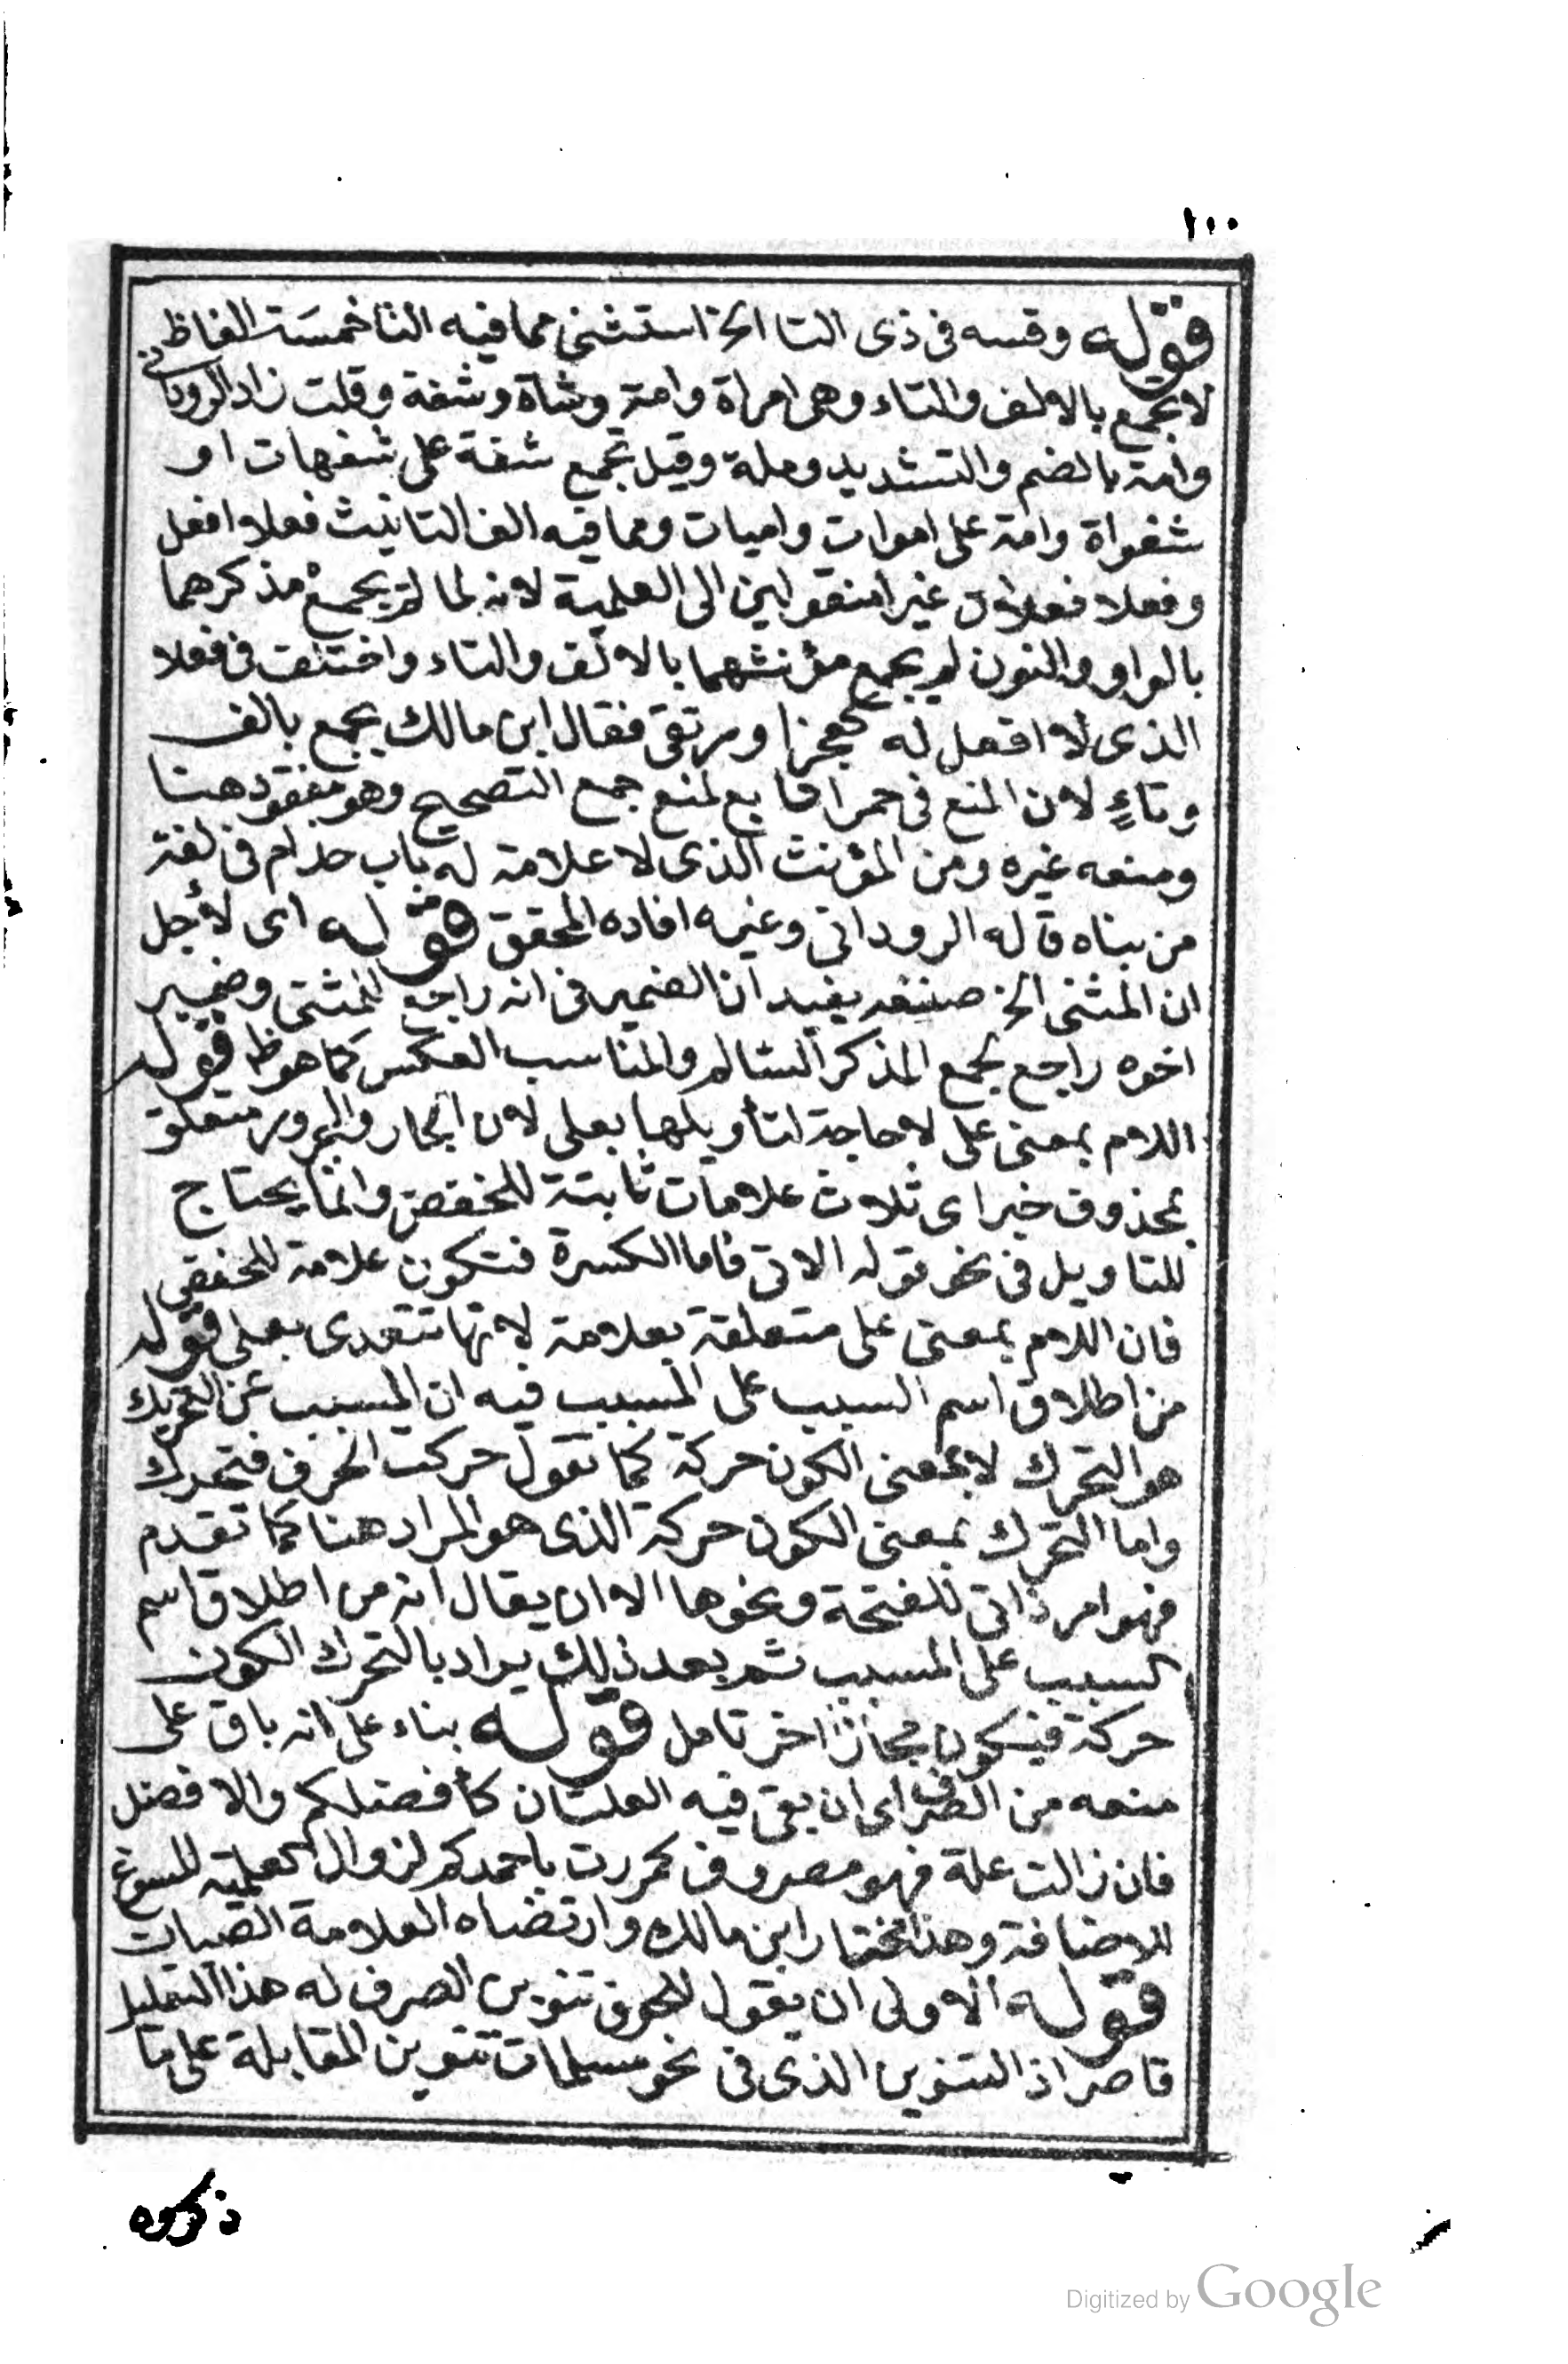 ١٠٠
قوله وقسه فى ذى التا الخ استثنى مما فيه التا خمست الفاظ
لا تجمع بالالف والتاء وهى امراة وامة وشاة وشفة وقلت زاد الرودانى
وامة بالضم والتشديد وملة وقيل تجمع شفة على شفهات او
شفواة وامة على اموات واميات ومما فيه الف التانيث فعلا افعل
وفعلا فعلان غير منقولين الى العلمية لانه لما لم يجمع مذكرهما
بالواو والنون لم يجمع مؤنثهما بالالف والتاء واختلف فى فعلا
الذى لا افعل له كعجزا ورتقى فقال ابن مالك يجمع بالف
وتاءٍ لان المنع فى حمرا تابع لمنع جمع التصحيح وهو مفقود هنا
ومنعه غيره ومن المؤنث الذى لا علامة له باب حذام فى لغة
من بناه قاله الرودانى وغيره افاده المحقق قوله اى لأجل
ان المثنى الخ صنيعه يفيد ان الضمير فى انه راجع للمثنى وضمير
اخوه راجع لجمع المذكر السالم والمناسب العكس كما هو ظ قوله
اللام بمعنى على لا حاجة لتأويلها بعلى لان الجار والمجرور متعلق
بمحذوف خبر اى ثلاث علامات ثابتة للخفض وانما يحتاج
للتاويل فى نحو قوله الاتى فاما الكسرة فتكون علامة للخفض
فان اللام بمعنى على متعلقة بعلامة لانها تتعدى بعلى قوله
من اطلاق اسم السبب على المسبب فيه ان المسبب عن التحريك
هو التحرك لا بمعنى الكون حركة كما تقول حركت الحرف فتحرك
واما التحرك بمعنى الكون حركة الذى هو المراد هنا كما تقدم
فهو امر ذاتى للفتحة ونحوها الا ان يقال انه من اطلاق اسم
السبب على المسبب ثم بعد ذلك يراد بالتحرك الكون
حركة فيكون مجازا اخر تامل قوله بناء على انه باق على
منعه من الصرف اى ان بقى فيه العلتان كأفضلكم والافضل
فان زالت علة فهو مصروف كمررت باحمدكم لزوال العلمية المسوغ
للاضافة وهذا مختار ابن مالك وارتضاه العلامة الصبان
قوله الاولى ان يقول للحوق تنوين الصرف له هذا التعليل
قاصر اذ التنوين الذى فى نحو مسلمات تنوين المقابلة على ما
ذكروه
Digitized by Google